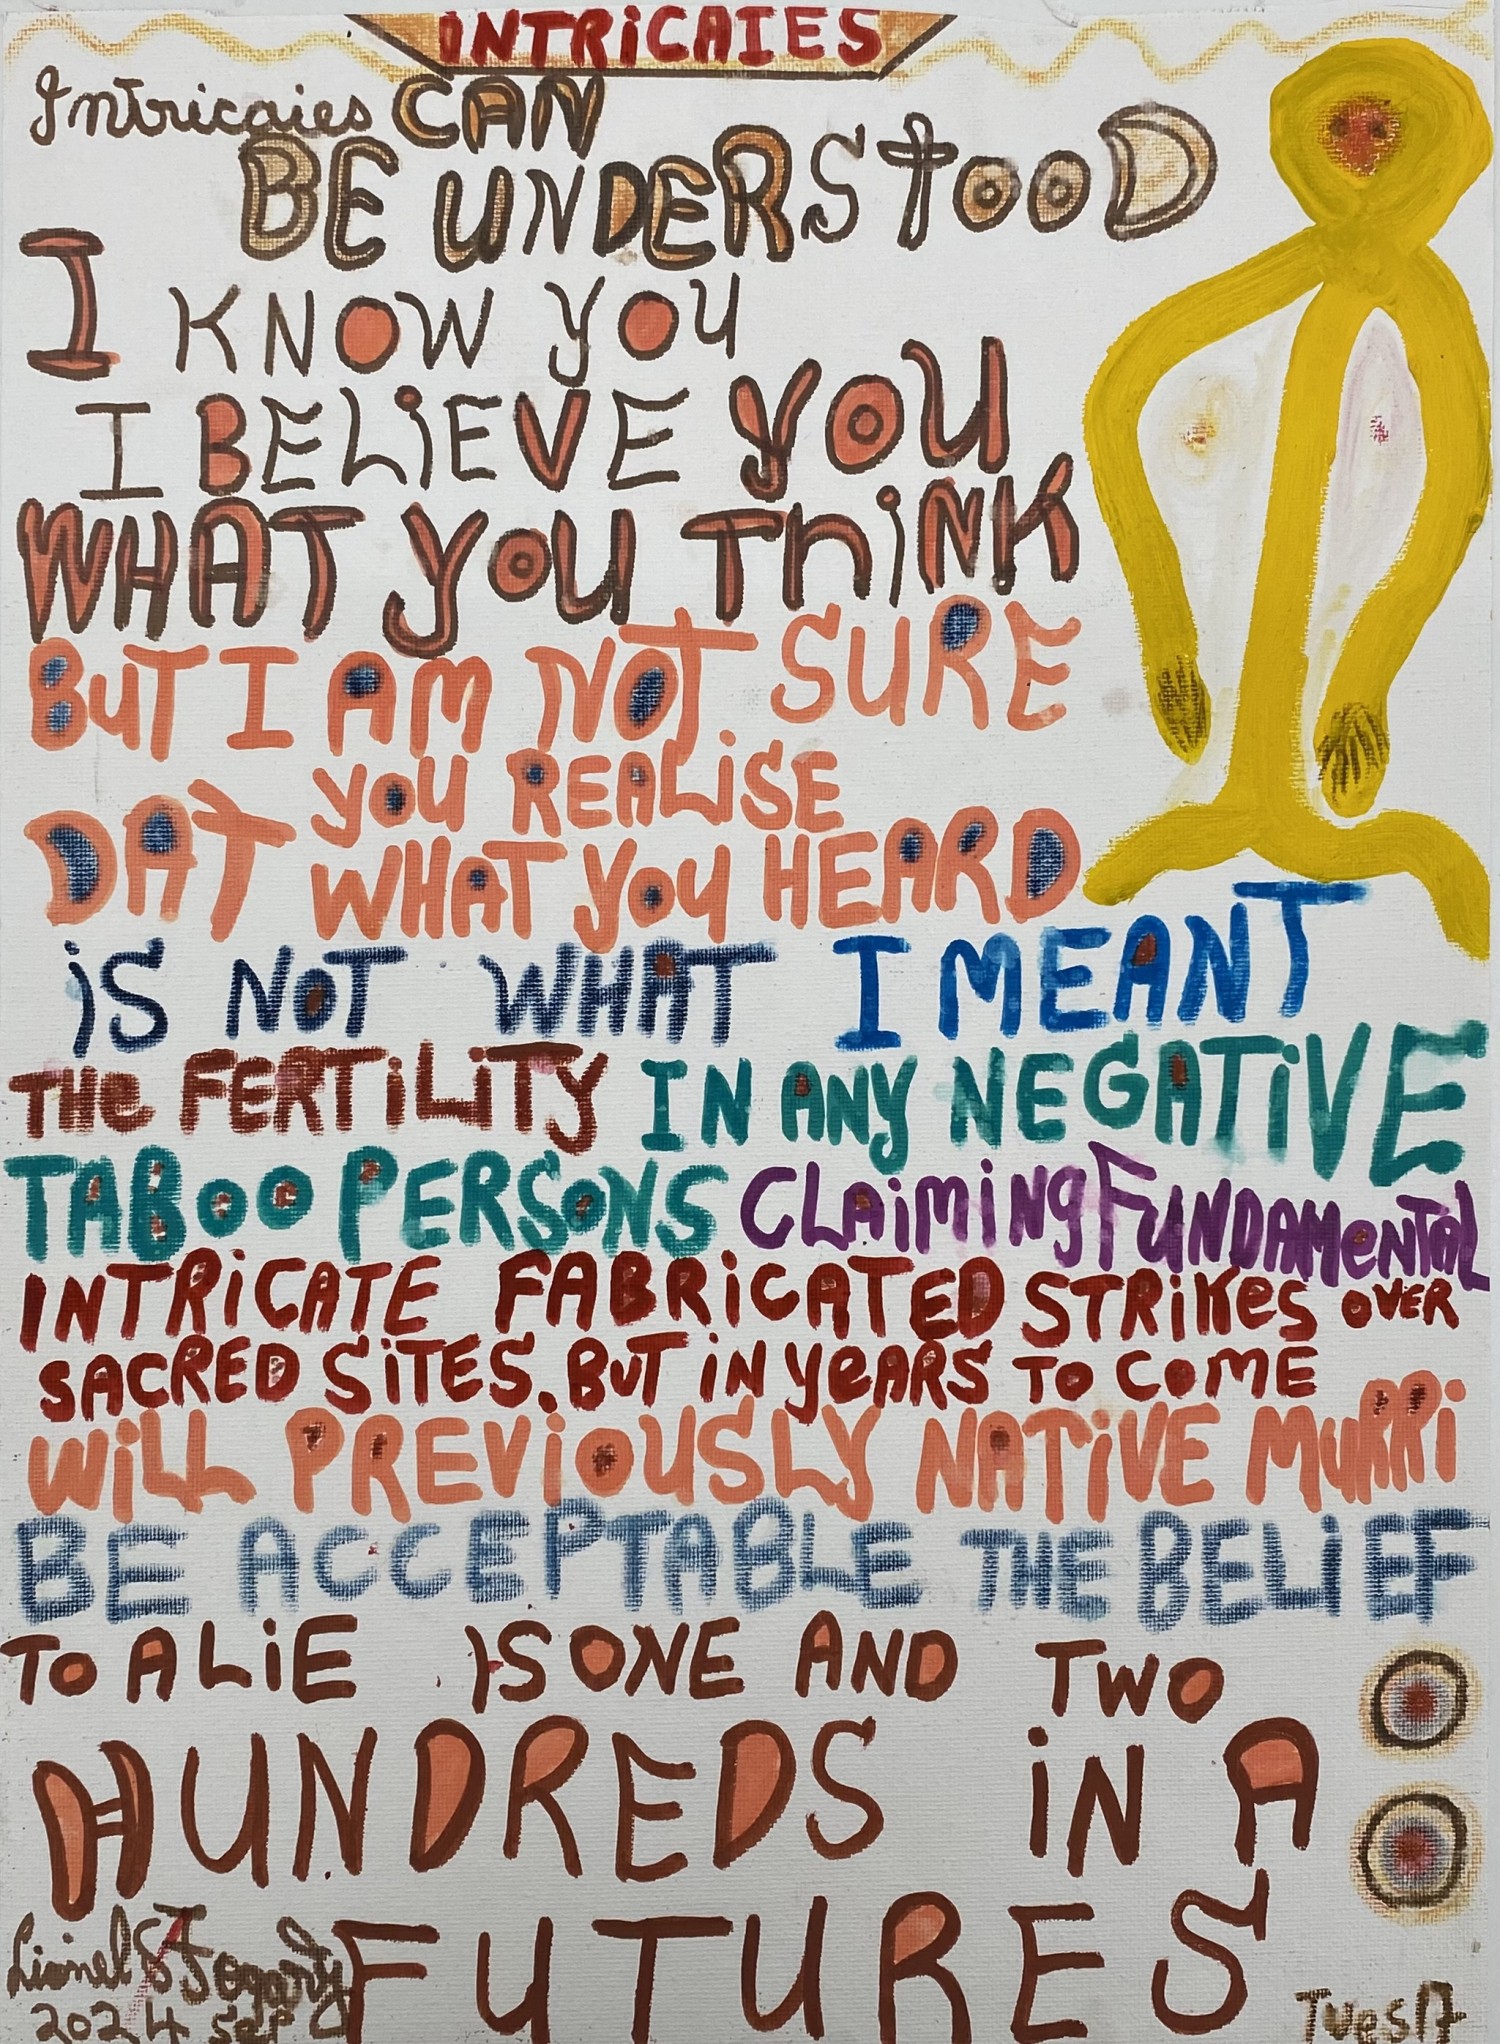 INTRICAIES
Intricaies CAN
BE UNDERStooD
I KNOW YOU
I BELiEVE YOU
WHAT YOU THiNK
BUT I AM NOT SURE
YOU REALiSE
DAT WHAT YOU HEARD
iS NOT WHAT I MEANT
THe FERTiLiTY IN ANY NEGATiVE
TABOO PERSONS CLAiMiNg FUNDAMeNTAL
INTRiCATE FABRiCATED STRiKes OVER
SACRED SiTES. BUT iN YeARS TO COME
WiLL PREViOUSLY NATiVE MURRi
BE ACCEPTABLE THE BELiEF
TO A LiE iS ONE AND TWO
HUNDREDS iN A
FUTURES
Lionel G Fogarty
2024 Sep